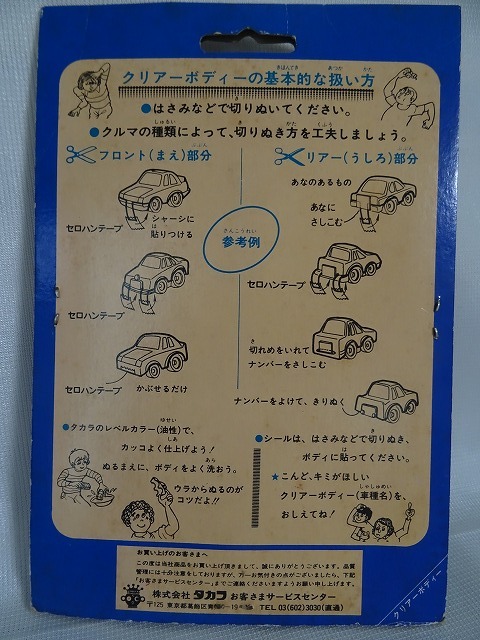 きほんてき あつか かた
クリアーボディーの基本的な扱い方
●はさみなどで切りぬいてください。
しゅるい き かた くふう
●クルマの種類によって、切りぬき方を工夫しましょう。
ぶぶん
フロント(まえ)部分
シャーシに
は
貼りつける
セロハンテープ
セロハンテープ
セロハンテープ
かぶせるだけ
さんこうれい
参考例
ぶぶん
リアー(うしろ)部分
あなのあるもの
あなに
さしこむ
セロハンテープ
き
切れめをいれて
ナンバーをさしこむ
ナンバーをよけて、きりぬく
ゆせい
●タカラのレベルカラー(油性)で、
しあ
カッコよく仕上げよう!
あら
ぬるまえに、ボディをよく洗おう。
ウラからぬるのが
コツだよ!!
き
●シールは、はさみなどで切りぬき、
は
ボディに貼ってください。
★こんど、キミがほしい
しゃしゅめい
クリアーボディー(車種名)を、
おしえてね!
お買い上げのお客さまへ
この度は当社商品をお買い上げ頂きまして、誠にありがとうございます。品質
管理には十分注意をしておりますが、万一お気付きの点がございましたら、下記
「お客さまサービスセンター」までご連絡くださいますようお願い申し上げます。
株式会社 タカラ お客さまサービスセンター
〒125 東京都葛飾区青 −19− TEL 03(602)3030(直通)
クリアーボディー